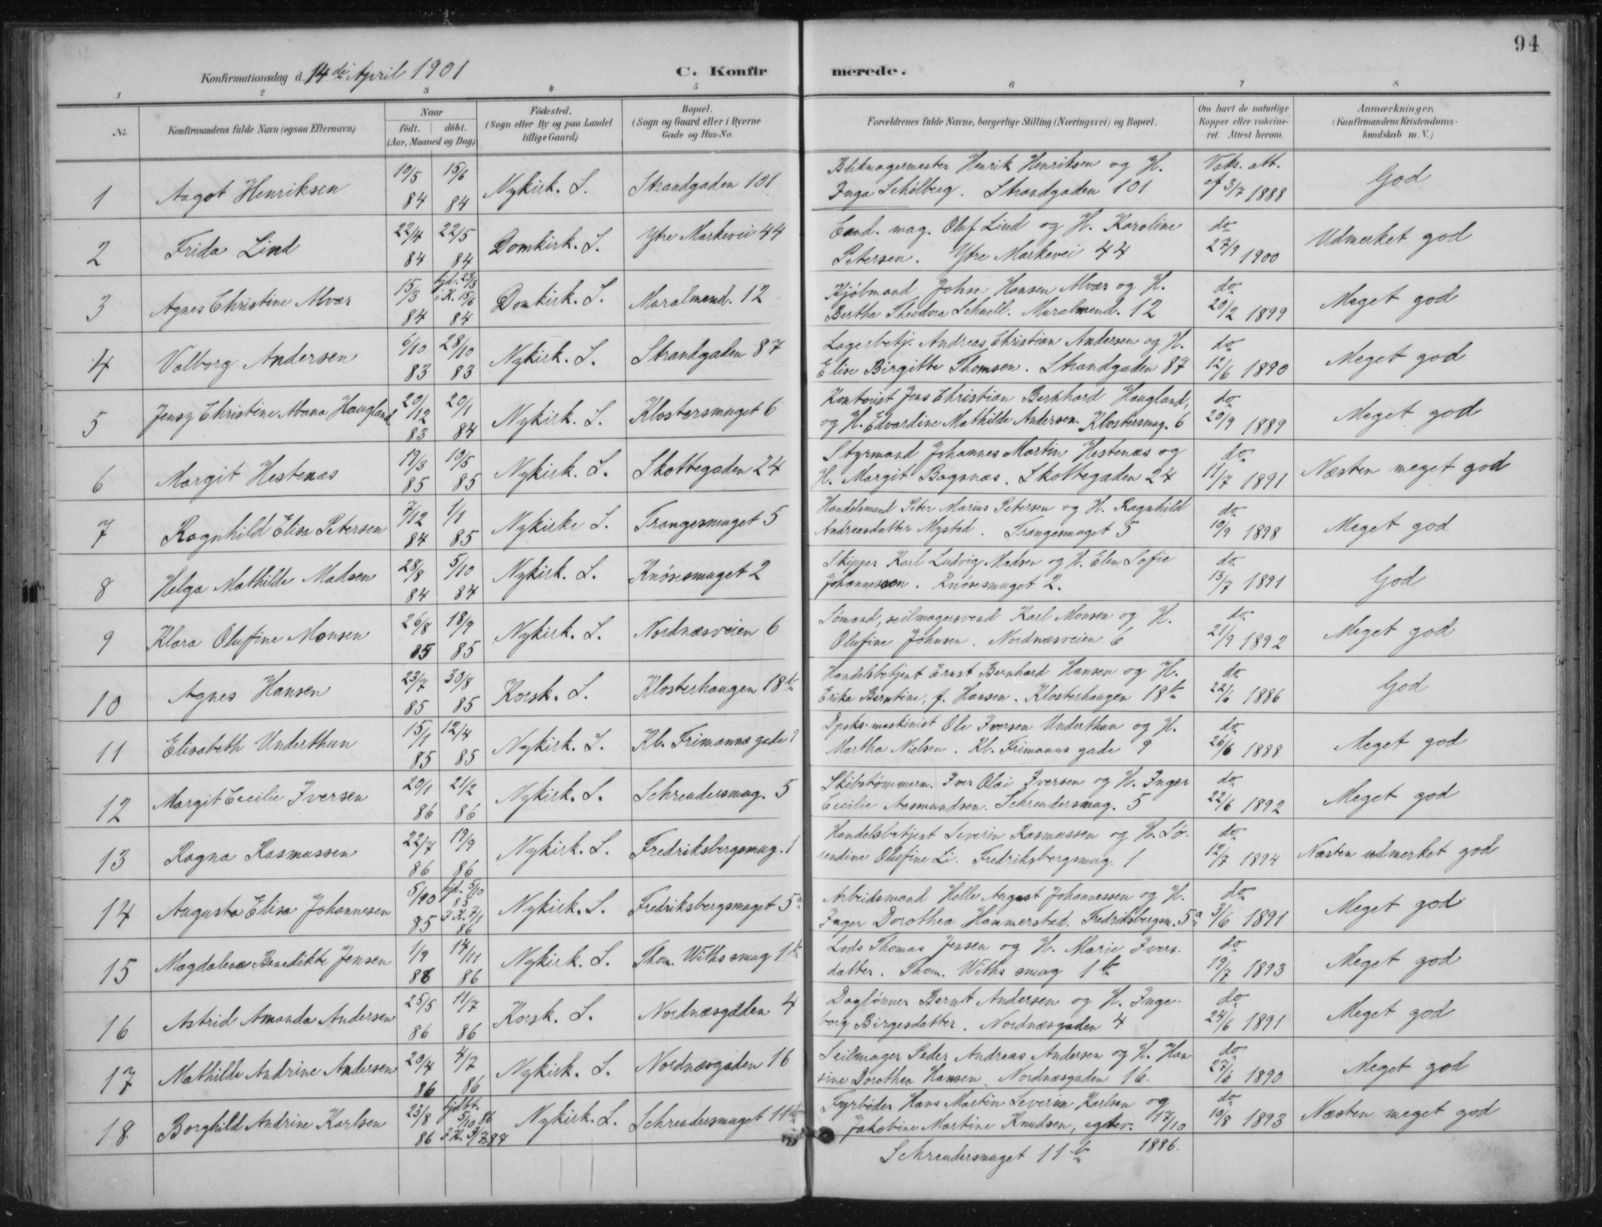 94
Konfirmationsdag d. 14de April 1901
C. Konfirmerede.
1 2 3 4 5 6 7 8
No.
Konfirmandens fulde Navn (ogsaa Efternavn)
Naar
født. døbt.
(Aar, Maaned og Dag)
Fødested.
(Sogn eller By og paa Landet
tillige Gaard)
Bopæl.
(Sogn og Gaard eller i Byerne
Gade og Hus-No.
Forældrenes fulde Navne, borgerlige Stilling (Næringsvei) og Bopæl.
Om havt de naturlige
Kopper eller vakcine-
ret Attest herom.
Anmærkninger.
(Konfirmandens Kristendoms-
kundskab m. V.)
1 Aagot Henriksen 19/5 84 15/6 84 Nykirk. S. Strandgaden 101 Blikmagermester Henrik Henriksen og H.
Inga Schølberg. Strandgaden 101 Vaks. att. af 3/7 1888 God
2 Frida Lind 22/4 84 22/5 84 Domkirk. S. Ytre Markevei 44 Cand. mag. Oluf Lind og H. Karoline
Petersen. Ytre Markevei 44 do 27/9 1900 Udmerket god
3 Agnes Christine Alvær 15/3 84 hjd. 28/3 i K. 15/6 84 Domkirk. S. Muralmend. 12 Kjøbmand John Hansen Alvær og H.
Bertha Theodora Schnell. Muralmend. 12 do 20/2 1899 Meget god
4 Valborg Andersen 6/10 83 28/10 83 Nykirk. S. Strandgaden 87 Lagerbetj. Andreas Christian Andersen og H.
Elise Birgitte Thomsen. Strandgaden 87 do 12/6 1890 Meget god
5 Jensy Christine Abana Haugland 20/12 83 20/1 84 Nykirk. S. Klostersmuget 6 Kontorist Jens Christian Bernhard Haugland,
og H. Edvardine Mathilde Andersen. Klostersmug. 6 do 20/9 1889 Meget god
6 Margit Hestenæs 19/3 85 10/5 85 Nykirk. S. Skottegaden 24 Styrmand Johannes Martin Hestenæs og
H. Margit Bagsnæs. Skottegaden 24 do 11/7 1891 Næsten meget god
7 Ragnhild Elisa Petersen 7/12 84 1/1 85 Nykirke S. Trangesmuget 5 Handelsmand Peter Marius Petersen og H. Ragnhild
Andreasdatter Nystad. Trangesmuget 5 do 19/9 1898 Meget god
8 Helga Mathilde Madsen 28/8 84 5/10 84 Nykirk. S. Knøsesmuget 2 Skipper Karl Ludvig Madsen og H. Elen Sofie
Johannesen. Knøsesmuget 2. do 13/7 1891 God
9 Klara Olufine Monsen 26/8 85 18/9 85 Nykirk. S. Nordnæsveien 6 Sømand, seilmagersvend Karl Monsen og H.
Olufine Johnsen. Nordnæsveien 6 do 21/9 1892 Meget god
10 Agnes Hansen 23/7 85 30/8 85 Korsk. S. Klosterhaugen 18b Handelsbetjent Ernst Bernhard Hansen og H.
Erika Berntine, f. Hansen. Klosterhaugen 18b do 22/6 1886 God
11 Elisabeth Underthun 15/1 85 12/4 85 Nykirk. S. Kl. Frimanns gade 9 Dpskb. maskinist Ole Iversen Underthun og H.
Martha Nielsen. Kl. Frimanns gade 9 do 26/6 1888 Meget god
12 Margit Cecilie Iversen 20/1 86 21/2 86 Nykirk. S. Schreudersmug. 5 Skibstømmerm. Iver Olai Iversen og H. Inger
Cecilie Aasmundsen. Schreudersmug. 5 do 22/6 1892 Meget god
13 Ragna Rasmussen 22/7 86 19/9 86 Nykirk. S. Fredriksbergsmug. 1 Handelsbetjent Severin Rasmussen og H. Sø-
rendine Olufine Li. Fredriksbergsmug. 1 do 12/7 1894 Næsten udmerket god
14 Augusta Elisa Johannesen 5/10 85 hjd. 5/10 85 i K. 7/1 86 Nykirk. S. Fredriksbergsmuget 5a Arbeidsmand Helle August Johannessen og H.
Inger Dorothea Hammerstad. Fredriksbergsm. 5a do 3/6 1891 Meget god
15 Magdalena Benedikte Jensen 1/9 86 14/11 86 Nykirk. S. Thom. Withs smug 1b Lods Thomas Jensen og H. Marie Ivers-
datter. Thom. Withs smug 1b do 19/7 1893 Meget god
16 Astrid Amanda Andersen 25/5 86 11/7 86 Korsk. S. Nordnæsgaden 4 Daglønner Bernt Andersen og H. Inge-
borg Birgesdatter. Nordnæsgaden 4 do 24/6 1891 Meget god
17 Mathilde Andrine Andersen 20/4 86 4/7 86 Nykirk. S. Nordnæsgaden 16 Seilmager Peder Andreas Andersen og H. Han
sine Dorothea Hansen. Nordnæsgaden 16. do 27/6 1890 Meget god
18 Borghild Andrine Karlsen 23/8 86 hjdbt. 5/10 86 i K. 3/7 87 Nykirk. S. Schreudersmuget 11b Fyrbøder Hans Martin Severin Karlsen og
Jakobine Martine Knudsen, egtev. 17/10
1886.
Schreudersmuget 11b do 19/8 1893 Næsten meget god